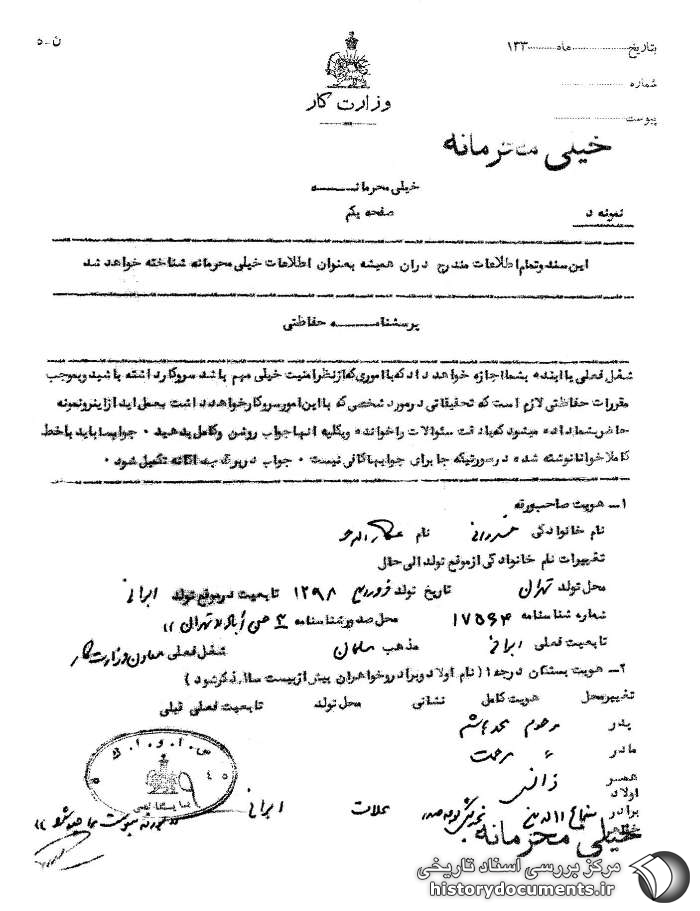 ن ـ ۵
بتاریخ ........ ماه ........ ۱۳۳
شماره
پیوست
وزارت کار
خیلی محرمانه
خیلی محرمانـــــه
نمونه د
صفحه یکم
این سند و تمام اطلاعات مندرج دران همیشه بعنوان اطلاعات خیلی محرمانه شناخته خواهد شد
پرسشنامـــــه حفاظتی
شغل فعلی یا اینده بشما اجازه خواهد داد که با اموری که از نظر امنیت خیلی مهم باشد سروکار داشته باشید و بموجب
مقررات حفاظتی لازم است که تحقیقاتی در مورد شخصی که با این امور سروکار خواهد داشت بعمل اید از اینرو نمونه
حاضر بشما داده میشود که با دقت سئوالات را خوانده و بکلیه انها جواب روشن و کامل بدهید ۰ جوابها باید با خط
کاملا خوانا نوشته شده در صورتیکه جا برای جوابها کافی نیست ۰ جواب در ورقه جداگانه تکمیل شود ۰
۱ـ هویت صاحب ورقه
نام خانوادگی خسروانی نام عطاءالله
تغییرات نام خانوادگی از موقع تولد الی حال
محل تولد تهران تاریخ تولد فروردین ۱۲۹۸ تابعیت در موقع تولد ایرانی
شماره شناسنامه ۱۷۵۶۴ محل صدور شناسنامه تهران
تابعیت فعلی ایرانی مذهب مسلمان شغل فعلی معاون وزارت کار
۲ـ هویت بستگان درجه ۱ ( نام اولاد و برادر و خواهران بیش از بیست سال ذکر شود )
تغییر محل هویت کامل نشانی محل تولد تابعیت فعلی قبلی
پدر مرحوم محمد هاشم
مادر
همسر
اولاد
برادر شجاع الدین محلات ایرانی
س.ا.و.ا.ک
بایگانی
خیلی محرمانه
مرکز بررسی اسناد تاریخی
historydocuments.ir